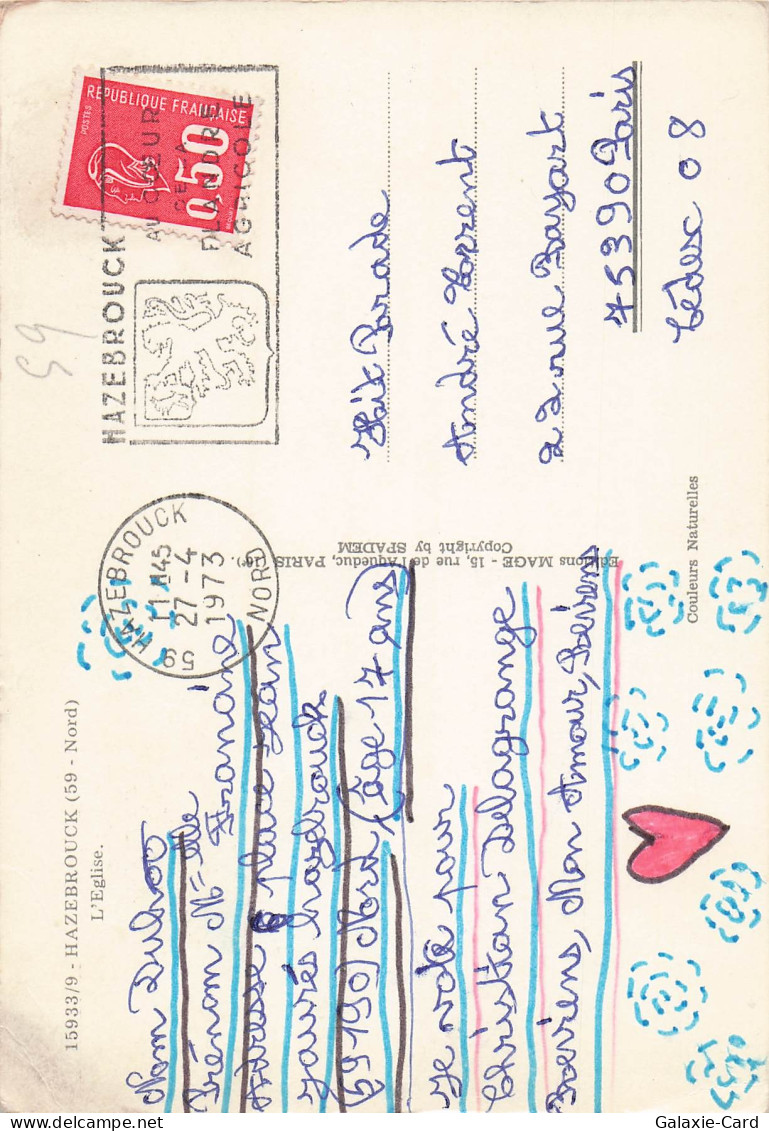 15933/9 - HAZEBROUCK (59 - Nord)
L'Eglise.
Nom Dubroo
Prénom Melle Francine
Adresse 6 place Jean
Jaurès hazebrouck
(59190) Nord (âge 17 ans)
Je vote pour
Christian Delagrange
Reviens, Mon Amour, Reviens
59 HAZEBROUCK NORD
11 H45
27 - 4
1973
HAZEBROUCK
AU CŒUR
DE LA
FLANDRE
AGRICOLE
POSTES
REPUBLIQUE FRANÇAISE
0,50
59
Editions MAGE - 15, rue de l'Aqueduc, PARIS
Copyright by SPADEM
Hit Parade
André Torrent
22 rue Bayart
75390 Paris
Cédex 08
Couleurs Naturelles
Galaxie-Card